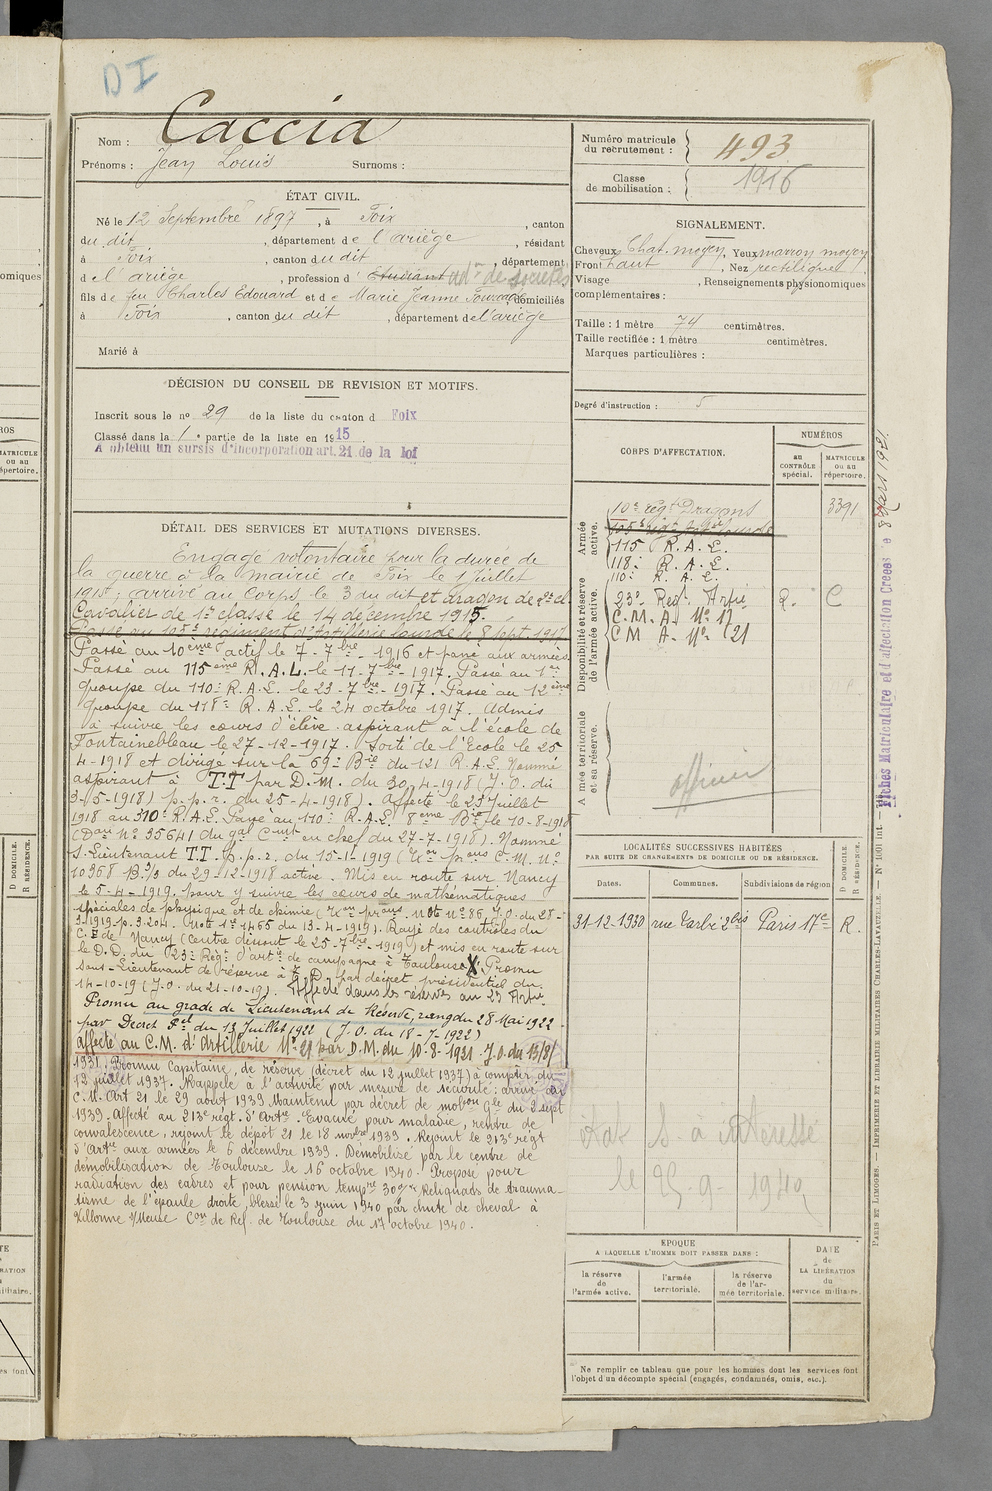 DI
Nom : Caccia
Prénoms : Jean Louis Surnoms :
ÉTAT CIVIL.
Né le 12 Septembre 1897, à Foix, canton
du dit, département de l'ariège, résidant
à Foix, canton du dit, département
de l'ariège, profession d' étudiant adr de sociétés
fils de feu Charles Edouard et de Marie Jeanne domiciliés
à Foix, canton du dit, département de l'ariège
Marié à
DÉCISION DU CONSEIL DE REVISION ET MOTIFS.
Inscrit sous le no 29 de la liste du canton d Foix
Classé dans la 1e partie de la liste en 1915
A obtenu un sursis d'incorporation art. 21 de la loi
DÉTAIL DES SERVICES ET MUTATIONS DIVERSES.
Engagé volontaire pour la durée de
la guerre à la mairie de Foix le 1 Juillet
1915; arrivé au Corps le 3 du dit et dragon de 2e cl
Cavalier de 1e classe le 14 décembre 1915.
Passé au 105e régiment d'Artillerie lourde le 8 Sept. 1917
Passé au 10ème actif le 7-7bre-1916 et passé aux armées
Passé au 115ème R.A.L. le 11-7bre-1917. Passé au 1er
groupe du 110e R.A.L. le 23-7bre-1917. Passé au 12ème
groupe du 118e R.A.L. le 24 octobre 1917. Admis
à suivre les cours d'élève aspirant à l'école de
Fontainebleau le 27-12-1917. Sorti de l'Ecole le 25
4-1918 et dirigé sur la 69e Bie du 121 R.A.L. Nommé
aspirant à T.T par D.M. du 30-4-1918 (J.O. du
3-5-1918) p.p.r. du 25-4-1918). Affecté le 23 Juillet
1918 au 310e R.A.L. Passé au 110e R.A.L. 8ème Bie le 10-8-1918
(Don No 35641 du gal Cmt en chef du 27-7-1918). Nommé
S-Lieutenant T.T. p.p.r. du 15-1-1919 C.M. No
10968 B.3/3 du 29-12-1918 active. Mis en route sur Nancy
le 5-4-1919 pour y suivre les cours de mathématiques
spéciales de physique et de chimie Note No 86, J.O. du 28-
3-1919 p. 3.204. Note 1e 1465 du 13-4-1919). Rayé des contrôles du
C. E de Nancy (Centre dissout le 25-7bre-1919) et mis en route sur
le D.D. du 23e Régt d'artie de campagne à Toulouse X Promu
Sous-Lieutenant de réserve à T.D. par décret présidentiel du
14-10-19 (J.O. du 21-10-19). Affecté dans les réserves au 23 Artie
Promu au grade de Lieutenant de Réserve, rang du 28 Mai 1922
par Decret Pel du 13 Juillet 1922 (J.O. du 18-7-1922)
affecté au C.M. d'Artillerie No 21 par D.M. du 10-8-1931 J.O. du 13/8/
1931. Promu Capitaine, de réserve (décret du 12 juillet 1937) à compter du
12 juillet 1937. Rappelé à l'activité par mesure de sécurité: arrivé au
C.M. Art 21 le 29 août 1939 Maintenu par décret de mobon gle du 2 sept
1939. Affecté au 213e régt. d'Artie. Evacué pour maladie, rentre de
convalescence, rejoint le dépôt 21 le 18 novbre 1939. Rejoint le 213e régt
d'Artie aux armées le 6 décembre 1939. Démobilisé par le centre de
démobilisation de Toulouse le 16 octobre 1940. Proposé pour
radiation des cadres et pour pension tempre 30% Reliquats de trauma-
tisme de l'épaule droite, blessé le 3 juin 1940 par chute de cheval à
Villonne s/Meuse Con de Ref. de Toulouse du 17 octobre 1940.
Numéro matricule
du recrutement : 493
Classe
de mobilisation : 1916
SIGNALEMENT.
Cheveux Chat. moyen, Yeux marron moyen
Front haut, Nez rectiligne
Visage , Renseignements physionomiques
complémentaires :
Taille : 1 mètre 74 centimètres.
Taille rectifiée : 1 mètre centimètres.
Marques particulières :
Degré d'instruction : 5
CORPS D'AFFECTATION.
NUMÉROS
AU CONTRÔLE spécial.
MATRICULE ou au répertoire.
Armée active.
10e régt Dragons 3391
105e régt Art lourde
115 R.A.L.
118e R.A.L.
110e R.A.L.
Disponibilité et réserve de l'armée active.
23e Regt Artie R. C
C.M.A. No 17
C M A. No 21
Armée territoriale et sa réserve.
officier
LOCALITÉS SUCCESSIVES HABITÉES
PAR SUITE DE CHANGEMENTS DE DOMICILE OU DE RÉSIDENCE.
Dates. Communes. Subdivisions de région
D DOMICILE.
R RÉSIDENCE.
31-12-1930 rue Tarbé 2bis Paris 17e R.
S. a intéressé
le 25-9-1940
ÉPOQUE
A LAQUELLE L'HOMME DOIT PASSER DANS :
la réserve de l'armée active.
l'armée territoriale.
la réserve de l'armée territoriale.
DATE de LA LIBÉRATION du service militaire.
Ne remplir ce tableau que pour les hommes dont les services font
l'objet d'un décompte spécial (engagés, condamnés, omis, etc.).
Fiches Matriculaire et d'affectation Créées le 8 Mars 1921
PARIS ET LIMOGES. — IMPRIMERIE ET LIBRAIRIE MILITAIRES CHARLES-LAVAUZELLE. — No 1001 int.